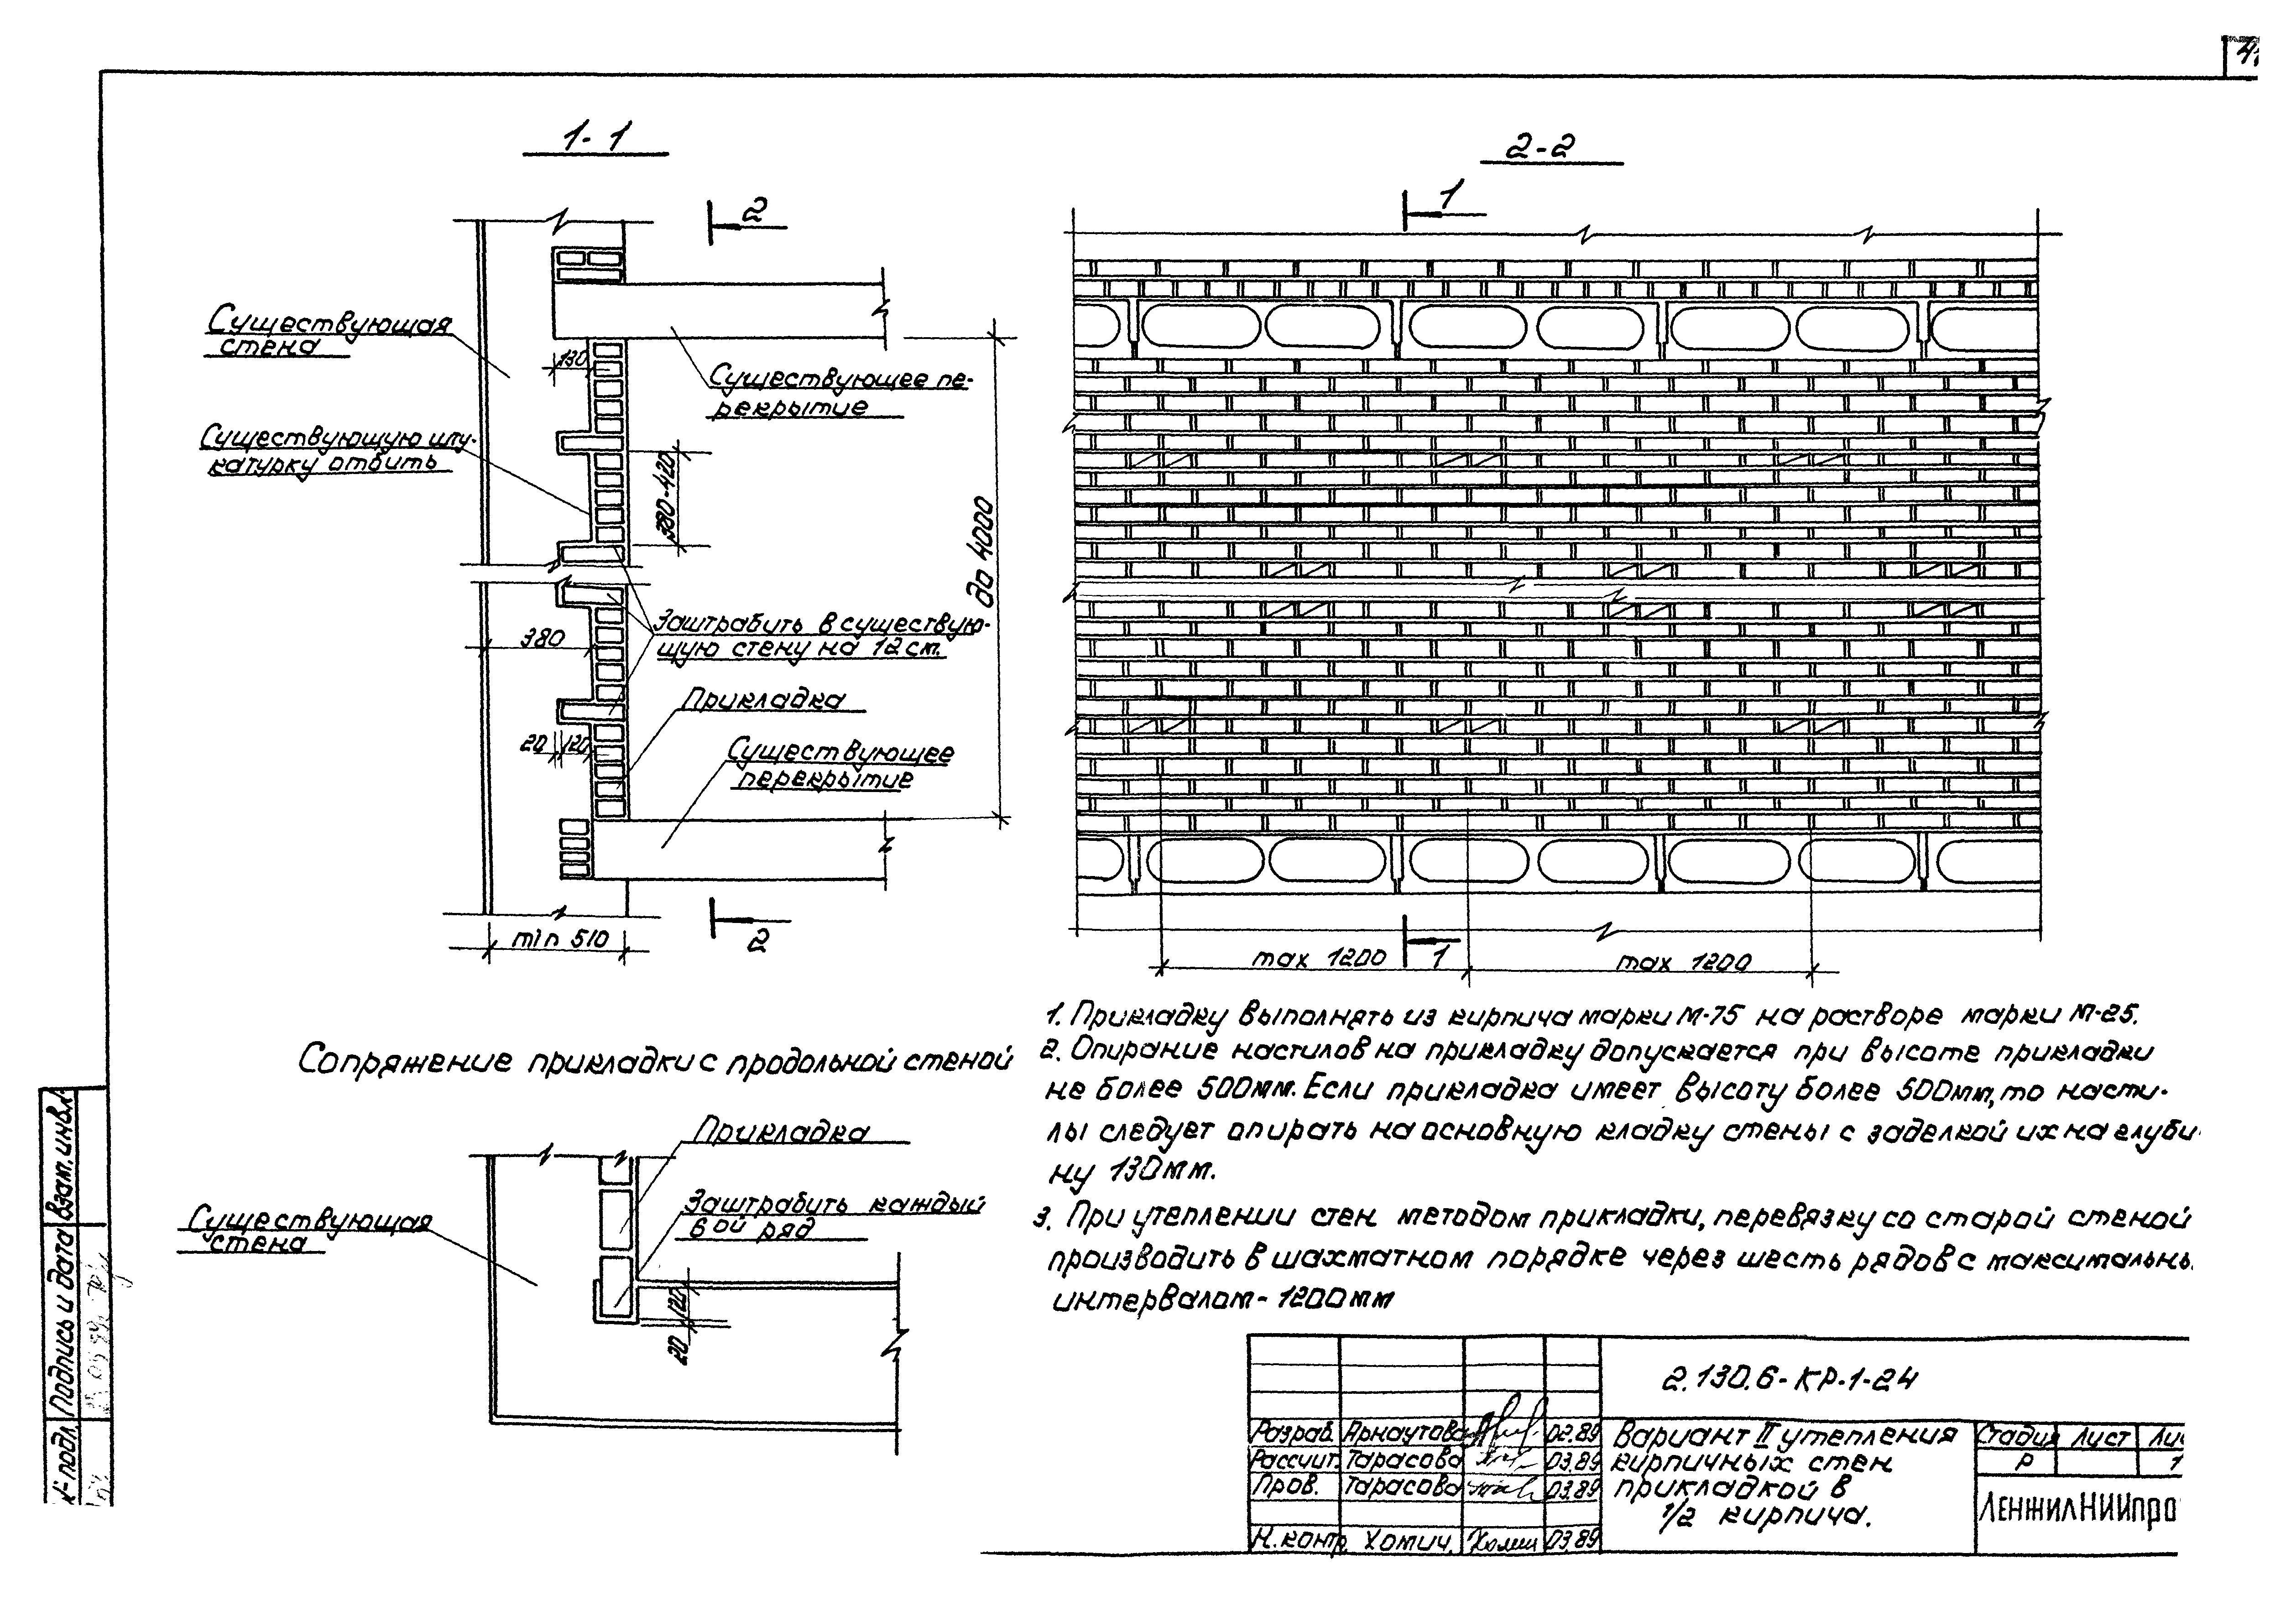 1-1
2
Существующая
стена
130
Существующее пе-
рекрытие
Существующую шту-
катурку отбить
380-420
до 4000
380
Заштрабить в существую-
щую стену на 12см.
Прикладка
20
120
Существующее
перекрытие
2
min 510
2-2
1
max 1200
1
max 1200
Сопряжение прикладки с продольной стеной
Прикладка
Существующая
стена
Заштрабить каждый
6ой ряд
120
20
1. Прикладку выполнять из кирпича марки М-75 на растворе марки М-25.
2. Опирание настилов на прикладку допускается при высоте прикладки
не более 500мм. Если прикладка имеет высоту более 500мм, то насти-
лы следует опирать на основную кладку стены с заделкой их на глуби
ну 130мм.
3. При утеплении стен методом прикладки, перевязку со старой стеной
производить в шахматном порядке через шесть рядов с максимальны
интервалом - 1200мм
2.130.6-КР.1-24
Разраб. Арнаутова 02.89
Рассчит. Тарасова 03.89
Пров. Тарасова 03.89
Н.контр. Хомич. 03.89
Вариант II утепления
кирпичных стен
прикладкой в
1/2 кирпича.
Стадия Лист Ли
Р 1
ЛЕНЖИЛНИИПРО
Взам.инв.
Подпись и дата
№ подл.